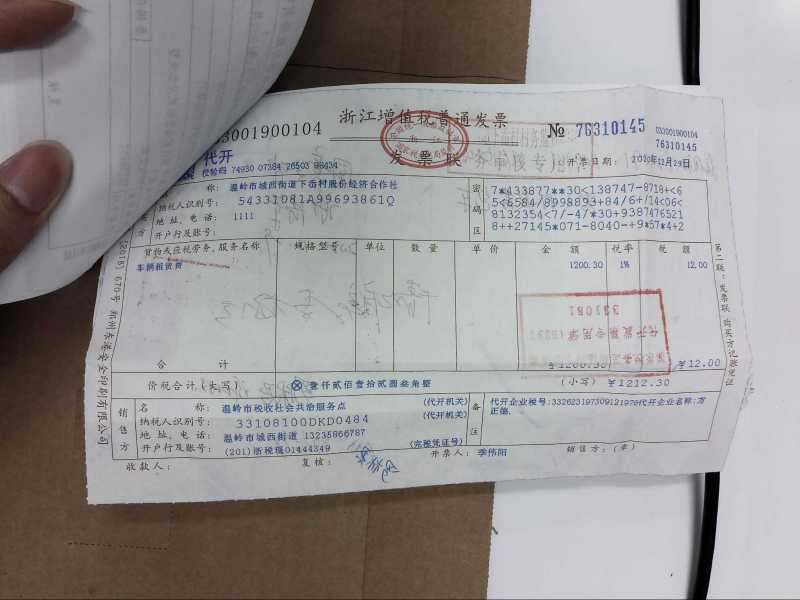 浙江增值税普通发票
3001900104
№ 76310145
033001900104
76310145
代开
发票联
校验码 74930 07384 26503 98434
开票日期: 2020年12月29日
名 称: 温岭市城西街道下岙村股份经济合作社
纳税人识别号: 54331081A99693861Q
地 址、电 话: 1111
开户行及账号:
密码区
7*433877**30<138747-8718+<6
5<6584/8998893+84/6+/14<06<
8132354<7/-4/*30+9387476521
8++27145*071-8040-+9*57*4+2
货物或应税劳务、服务名称 规格型号 单位 数 量 单 价 金 额 税率 税 额
车辆租赁费 1200.30 1% 12.00
331081
代开发票专用章
合 计 ¥1200.30 ¥12.00
价税合计(大写) ⊗壹仟贰佰壹拾贰圆叁角整 (小写) ¥1212.30
销售方
名 称: 温岭市税收社会共治服务点 (代开机关)
纳税人识别号: 33108100DKD0484 (代开机关)
地 址、电 话: 温岭市城西街道 13235866787
开户行及账号: (201)浙税现01444349 (完税凭证号)
备注
代开企业税号:332623197309121976代开企业名称:方
正德.
收款人: 复核: 开票人: 季伟阳 销售方:(章)
第二联:发票联 购买方记账凭证
670号 郑州东港安全印刷有限公司